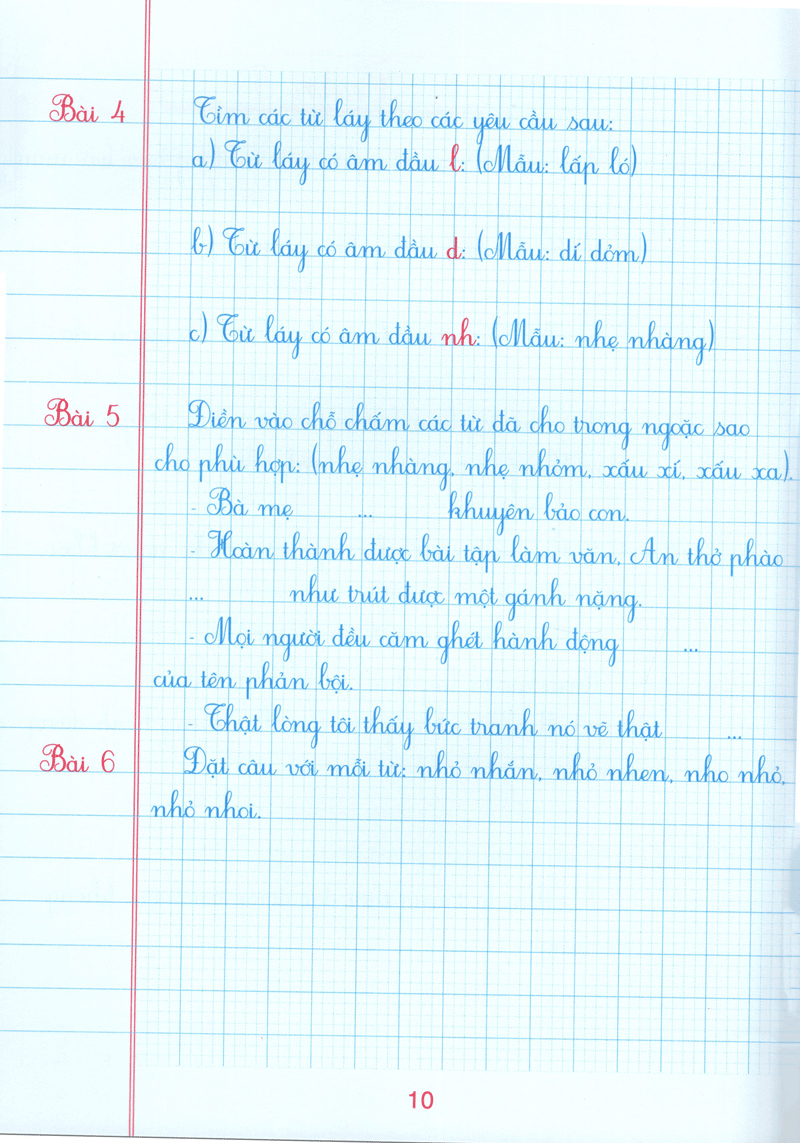 Bài 4 Tìm các từ láy theo các yêu cầu sau:
a) Từ láy có âm đầu l: (Mẫu: lấp ló)
b) Từ láy có âm đầu d: (Mẫu: dí dỏm)
c) Từ láy có âm đầu nh: (Mẫu: nhẹ nhàng)
Bài 5 Điền vào chỗ chấm các từ đã cho trong ngoặc sao
cho phù hợp: (nhẹ nhàng, nhẹ nhỏm, xấu xí, xấu xa).
- Bà mẹ ... khuyên bảo con.
- Hoàn thành được bài tập làm văn, An thở phào
... như trút được một gánh nặng.
- Mọi người đều căm ghét hành động ...
của tên phản bội.
- Thật lòng tôi thấy bức tranh nó vẽ thật ...
Bài 6 Đặt câu với mỗi từ: nhỏ nhắn, nhỏ nhen, nho nhỏ,
nhỏ nhoi.
10